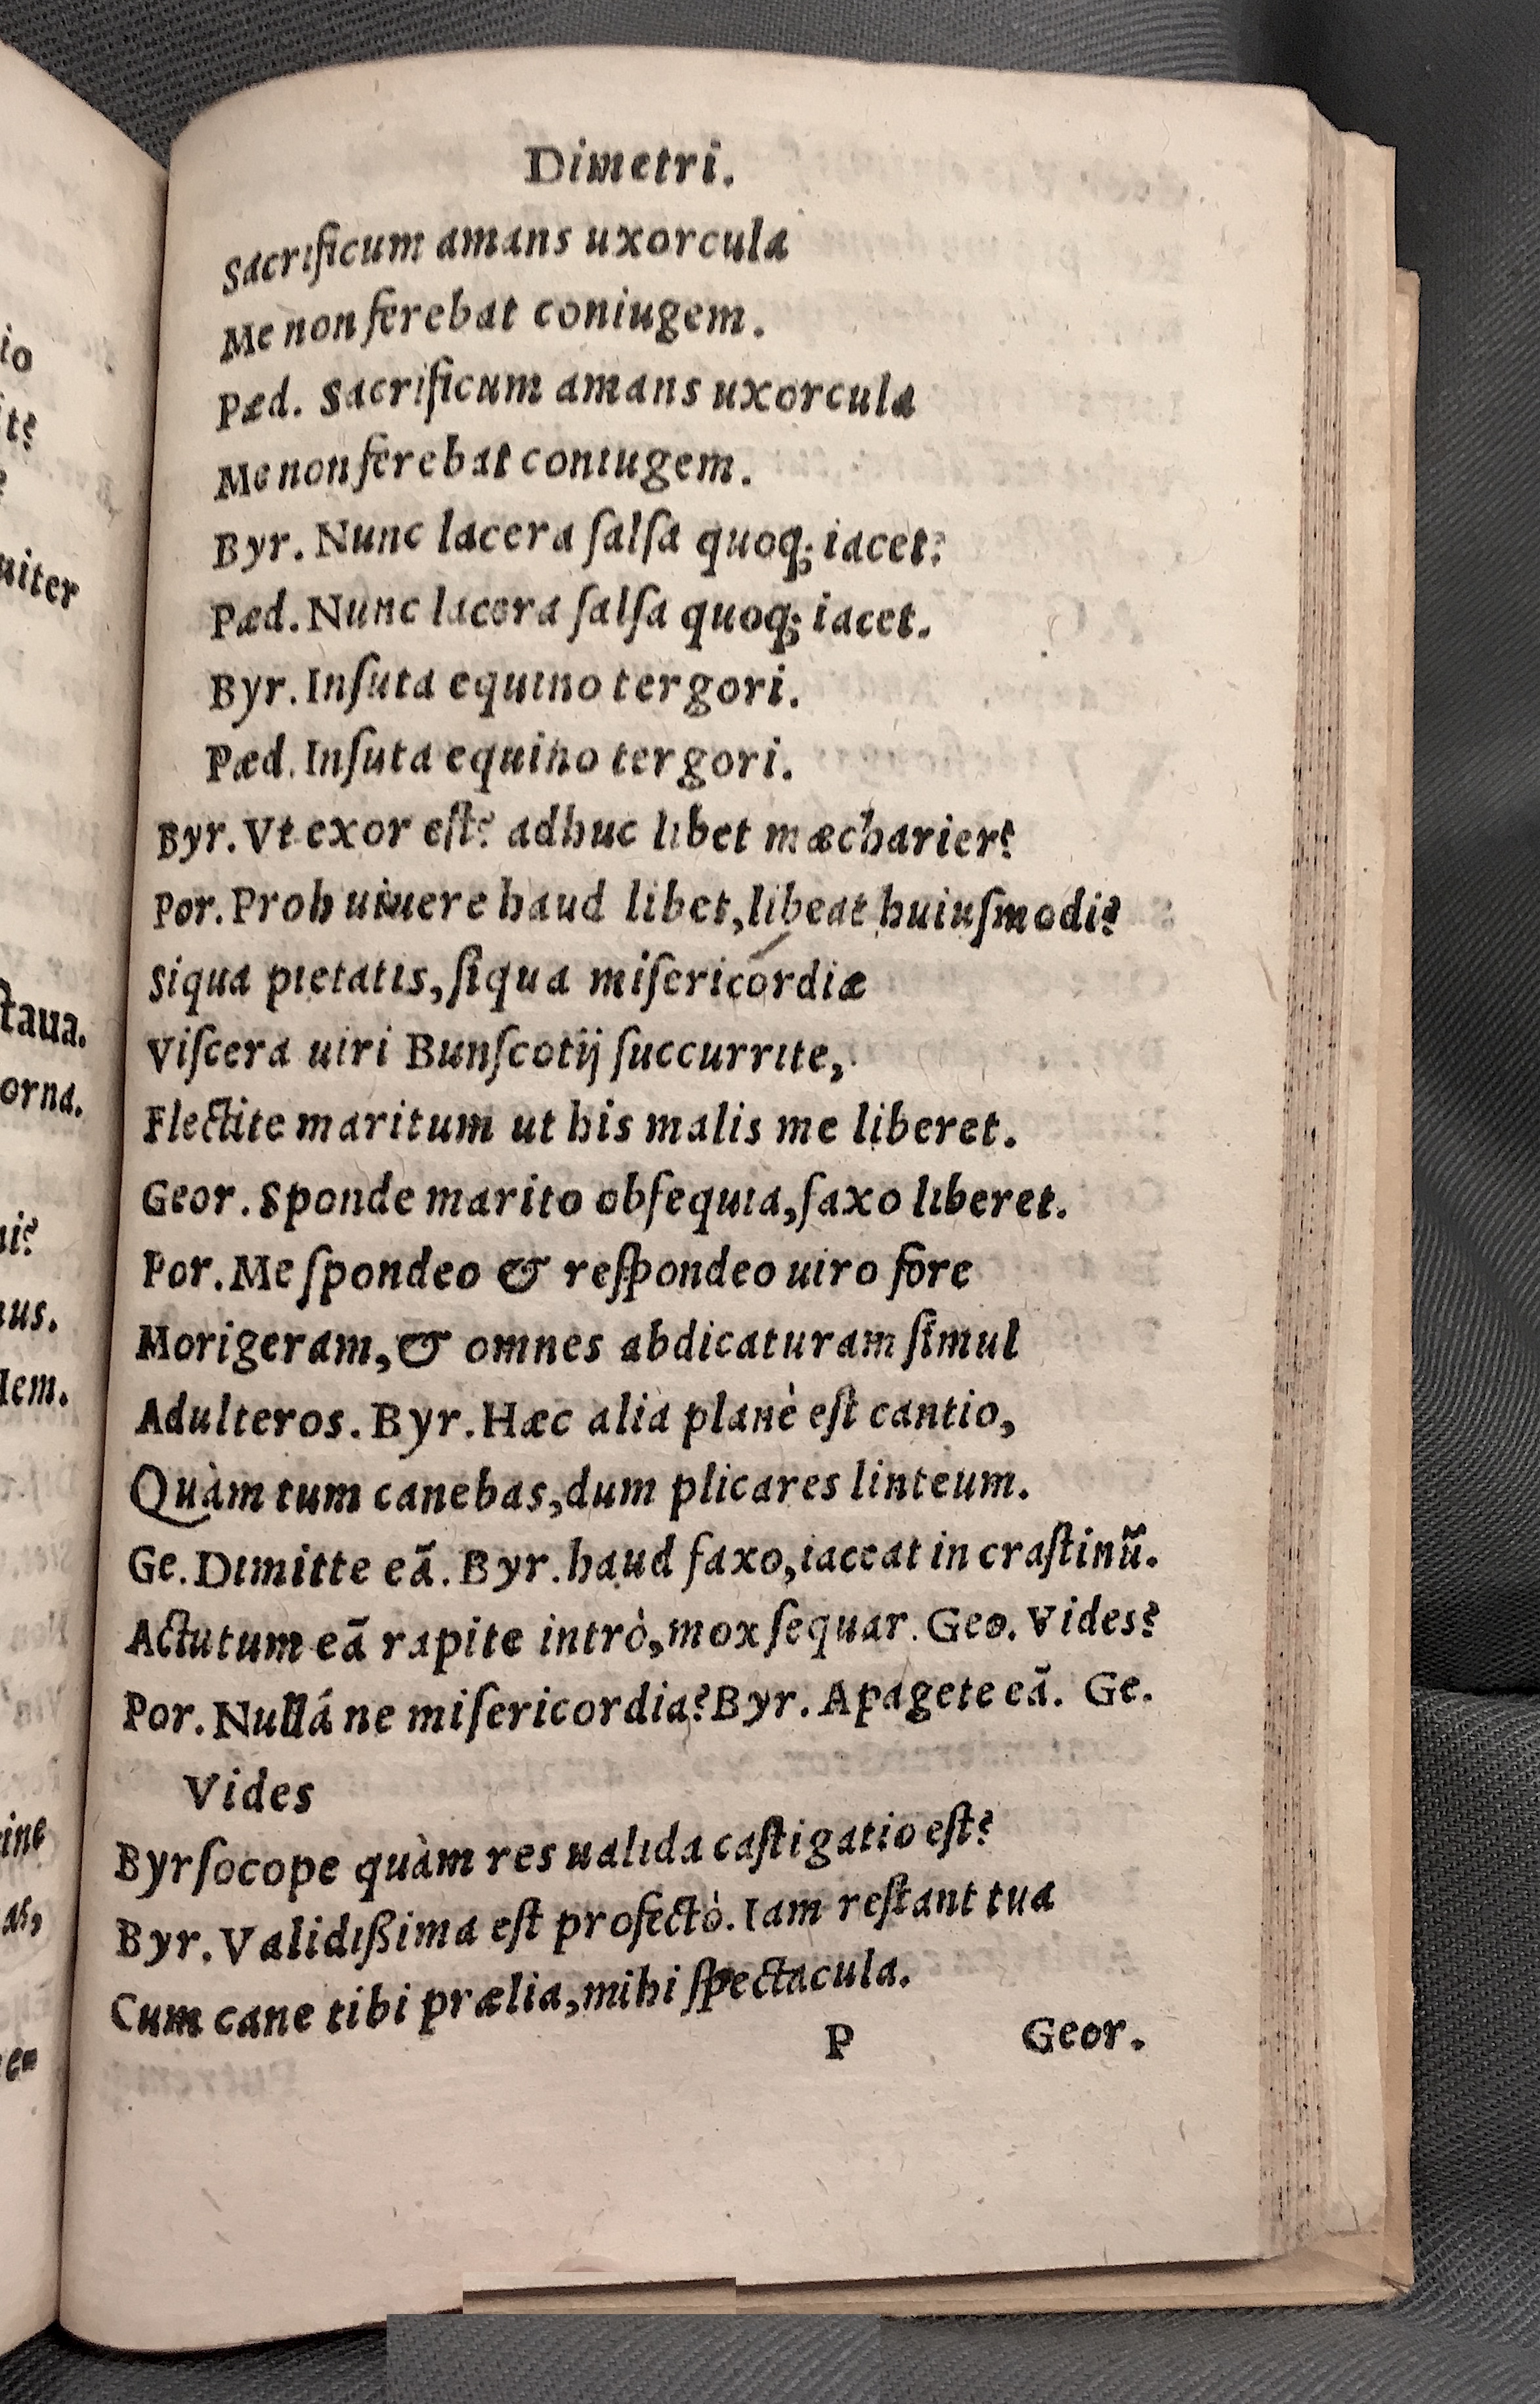 Dimetri.
Sacrificum amans uxorcula
Me non ferebat coniugem.
Pæd. Sacrificum amans uxorcula
Me non ferebat coniugem.
Byr. Nunc lacera ſalſa quoq; iacet?
Pæd. Nunc lacera ſalſa quoq; iacet.
Byr. Inſuta equino tergori.
Pæd. Inſuta equino tergori.
Byr. Vt exor eſt? adhuc libet mæcharier?
Por. Proh uiuere haud libet, libeat huiuſmodi?
Siqua pietatis, ſiqua miſericordiæ
Viſcera uiri Bunſcotij ſuccurrite,
Flectite maritum ut his malis me liberet.
Geor. Sponde marito obſequia, faxo liberet.
Por. Me ſpondeo & reſpondeo uiro fore
Morigeram, & omnes abdicaturam ſimul
Adulteros. Byr. Hæc alia planè eſt cantio,
Quàm tum canebas, dum plicares linteum.
Ge. Dimitte eã. Byr. haud faxo, iaceat in craſtinũ.
Actutum eã rapite intrò, mox ſequar. Geo. Vides?
Por. Nullá ne miſericordia? Byr. Apagete eã. Ge.
Vides
Byrſocope quàm res ualida caſtigatio eſt?
Byr. Validißima eſt profectò. Iam reſtant tua
Cum cane tibi prælia, mihi ſpectacula.
P Geor.